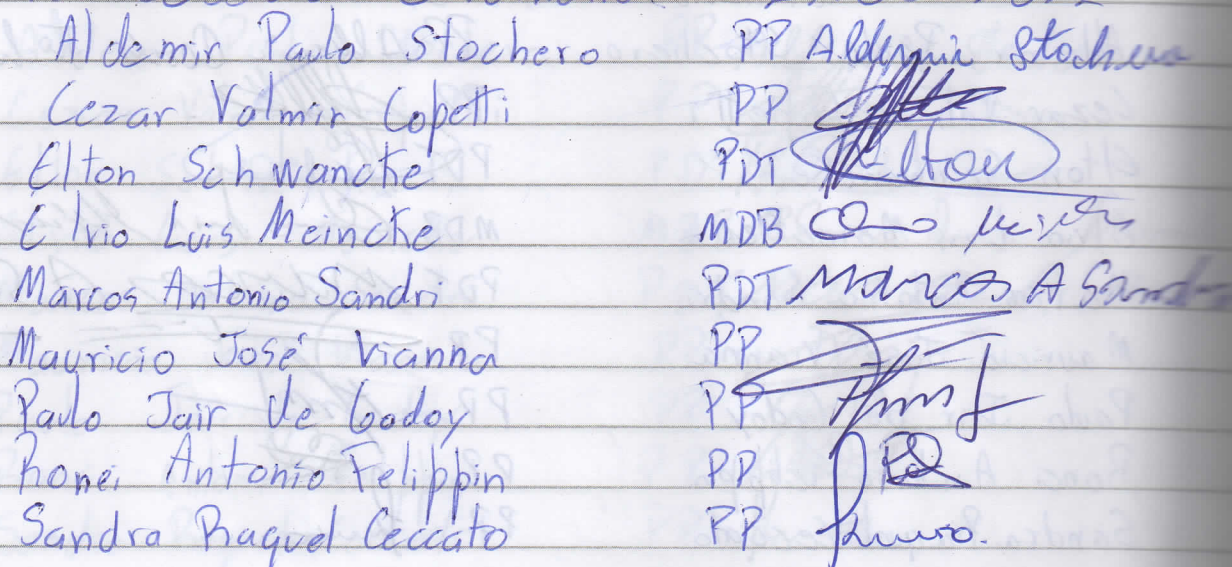 Aldemir Paulo Stochero PP Aldemir Stochero
Cezar Valmir Copetti PP
Elton Schwancke PDT Elton
Elvio Luis Meincke MDB
Marcos Antonio Sandri PDT Marcos A Sandri
Mauricio José Vianna PP
Paulo Jair de Godoy PP
Ronei Antonio Felippin PP
Sandra Raquel Ceccato PP